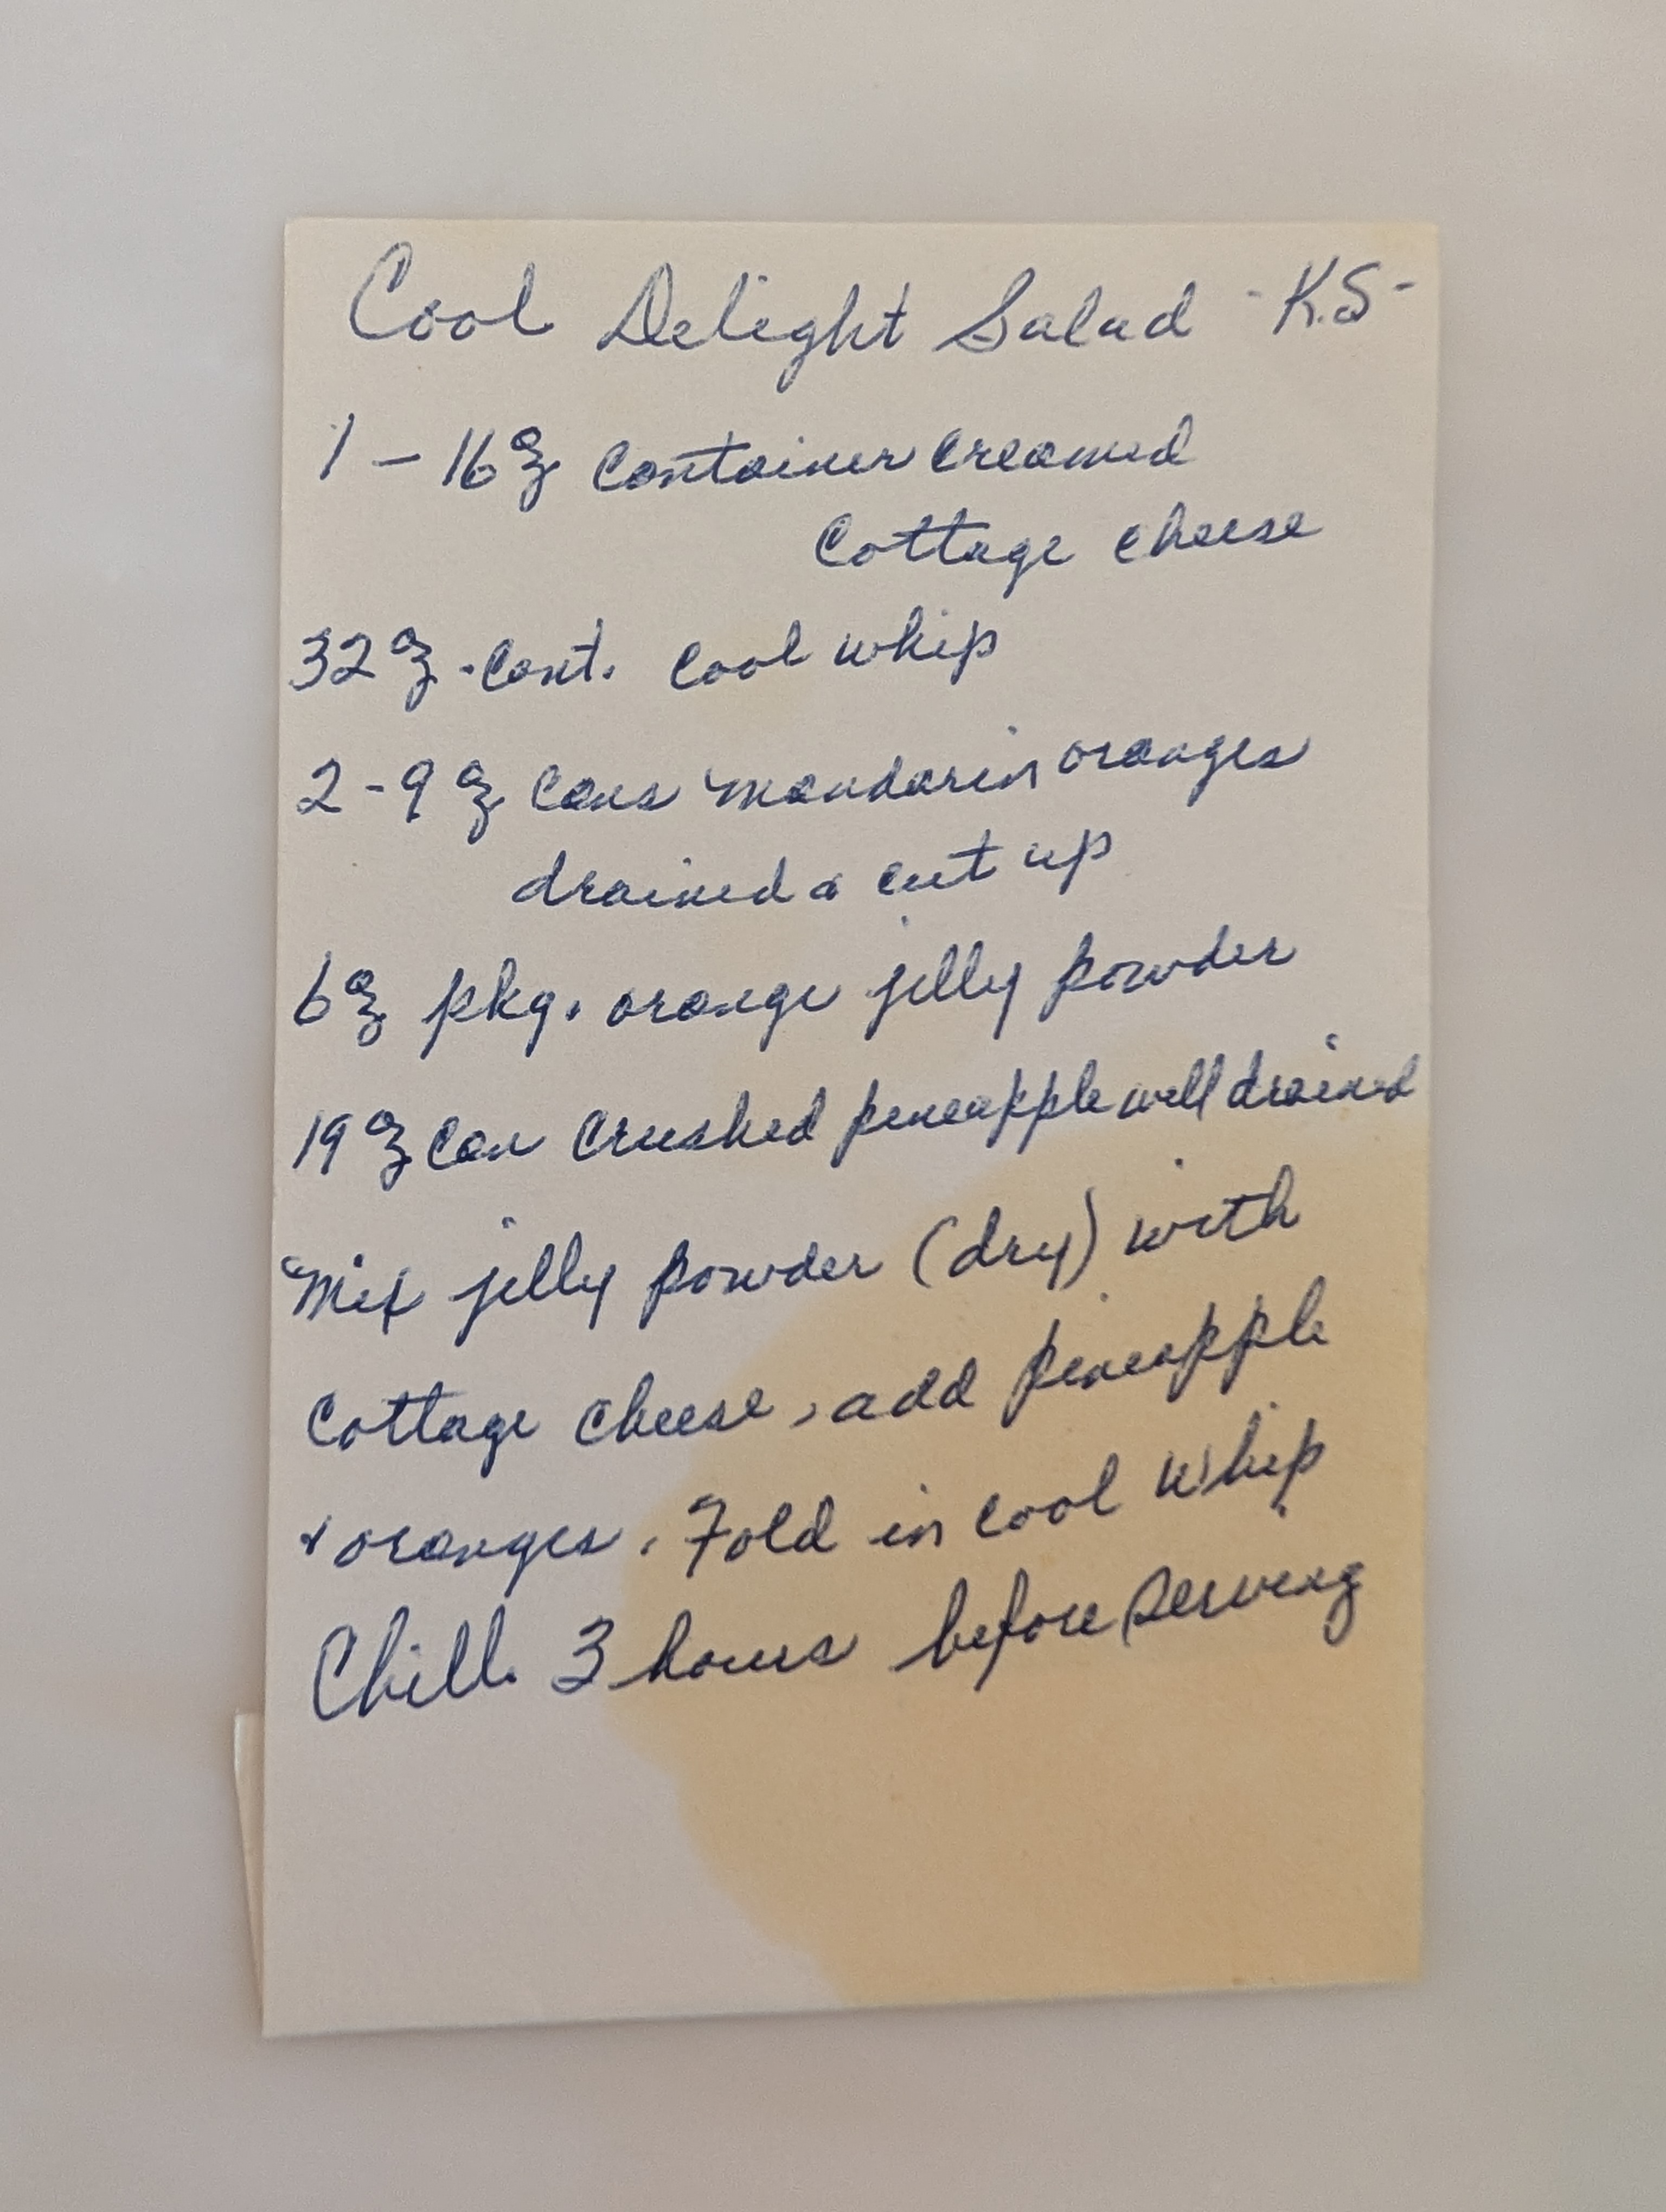 Cool Delight Salad - K.S -
1 - 16 oz container creamed
cottage cheese
32 oz - cont. cool whip
2 - 9 oz cans mandarin oranges
drained & cut up
6 oz pkg. orange jelly powder
19 oz can crushed pineapple well drained
Mix jelly powder (dry) with
cottage cheese, add pineapple
& oranges. Fold in cool whip
Chill 3 hours before serving